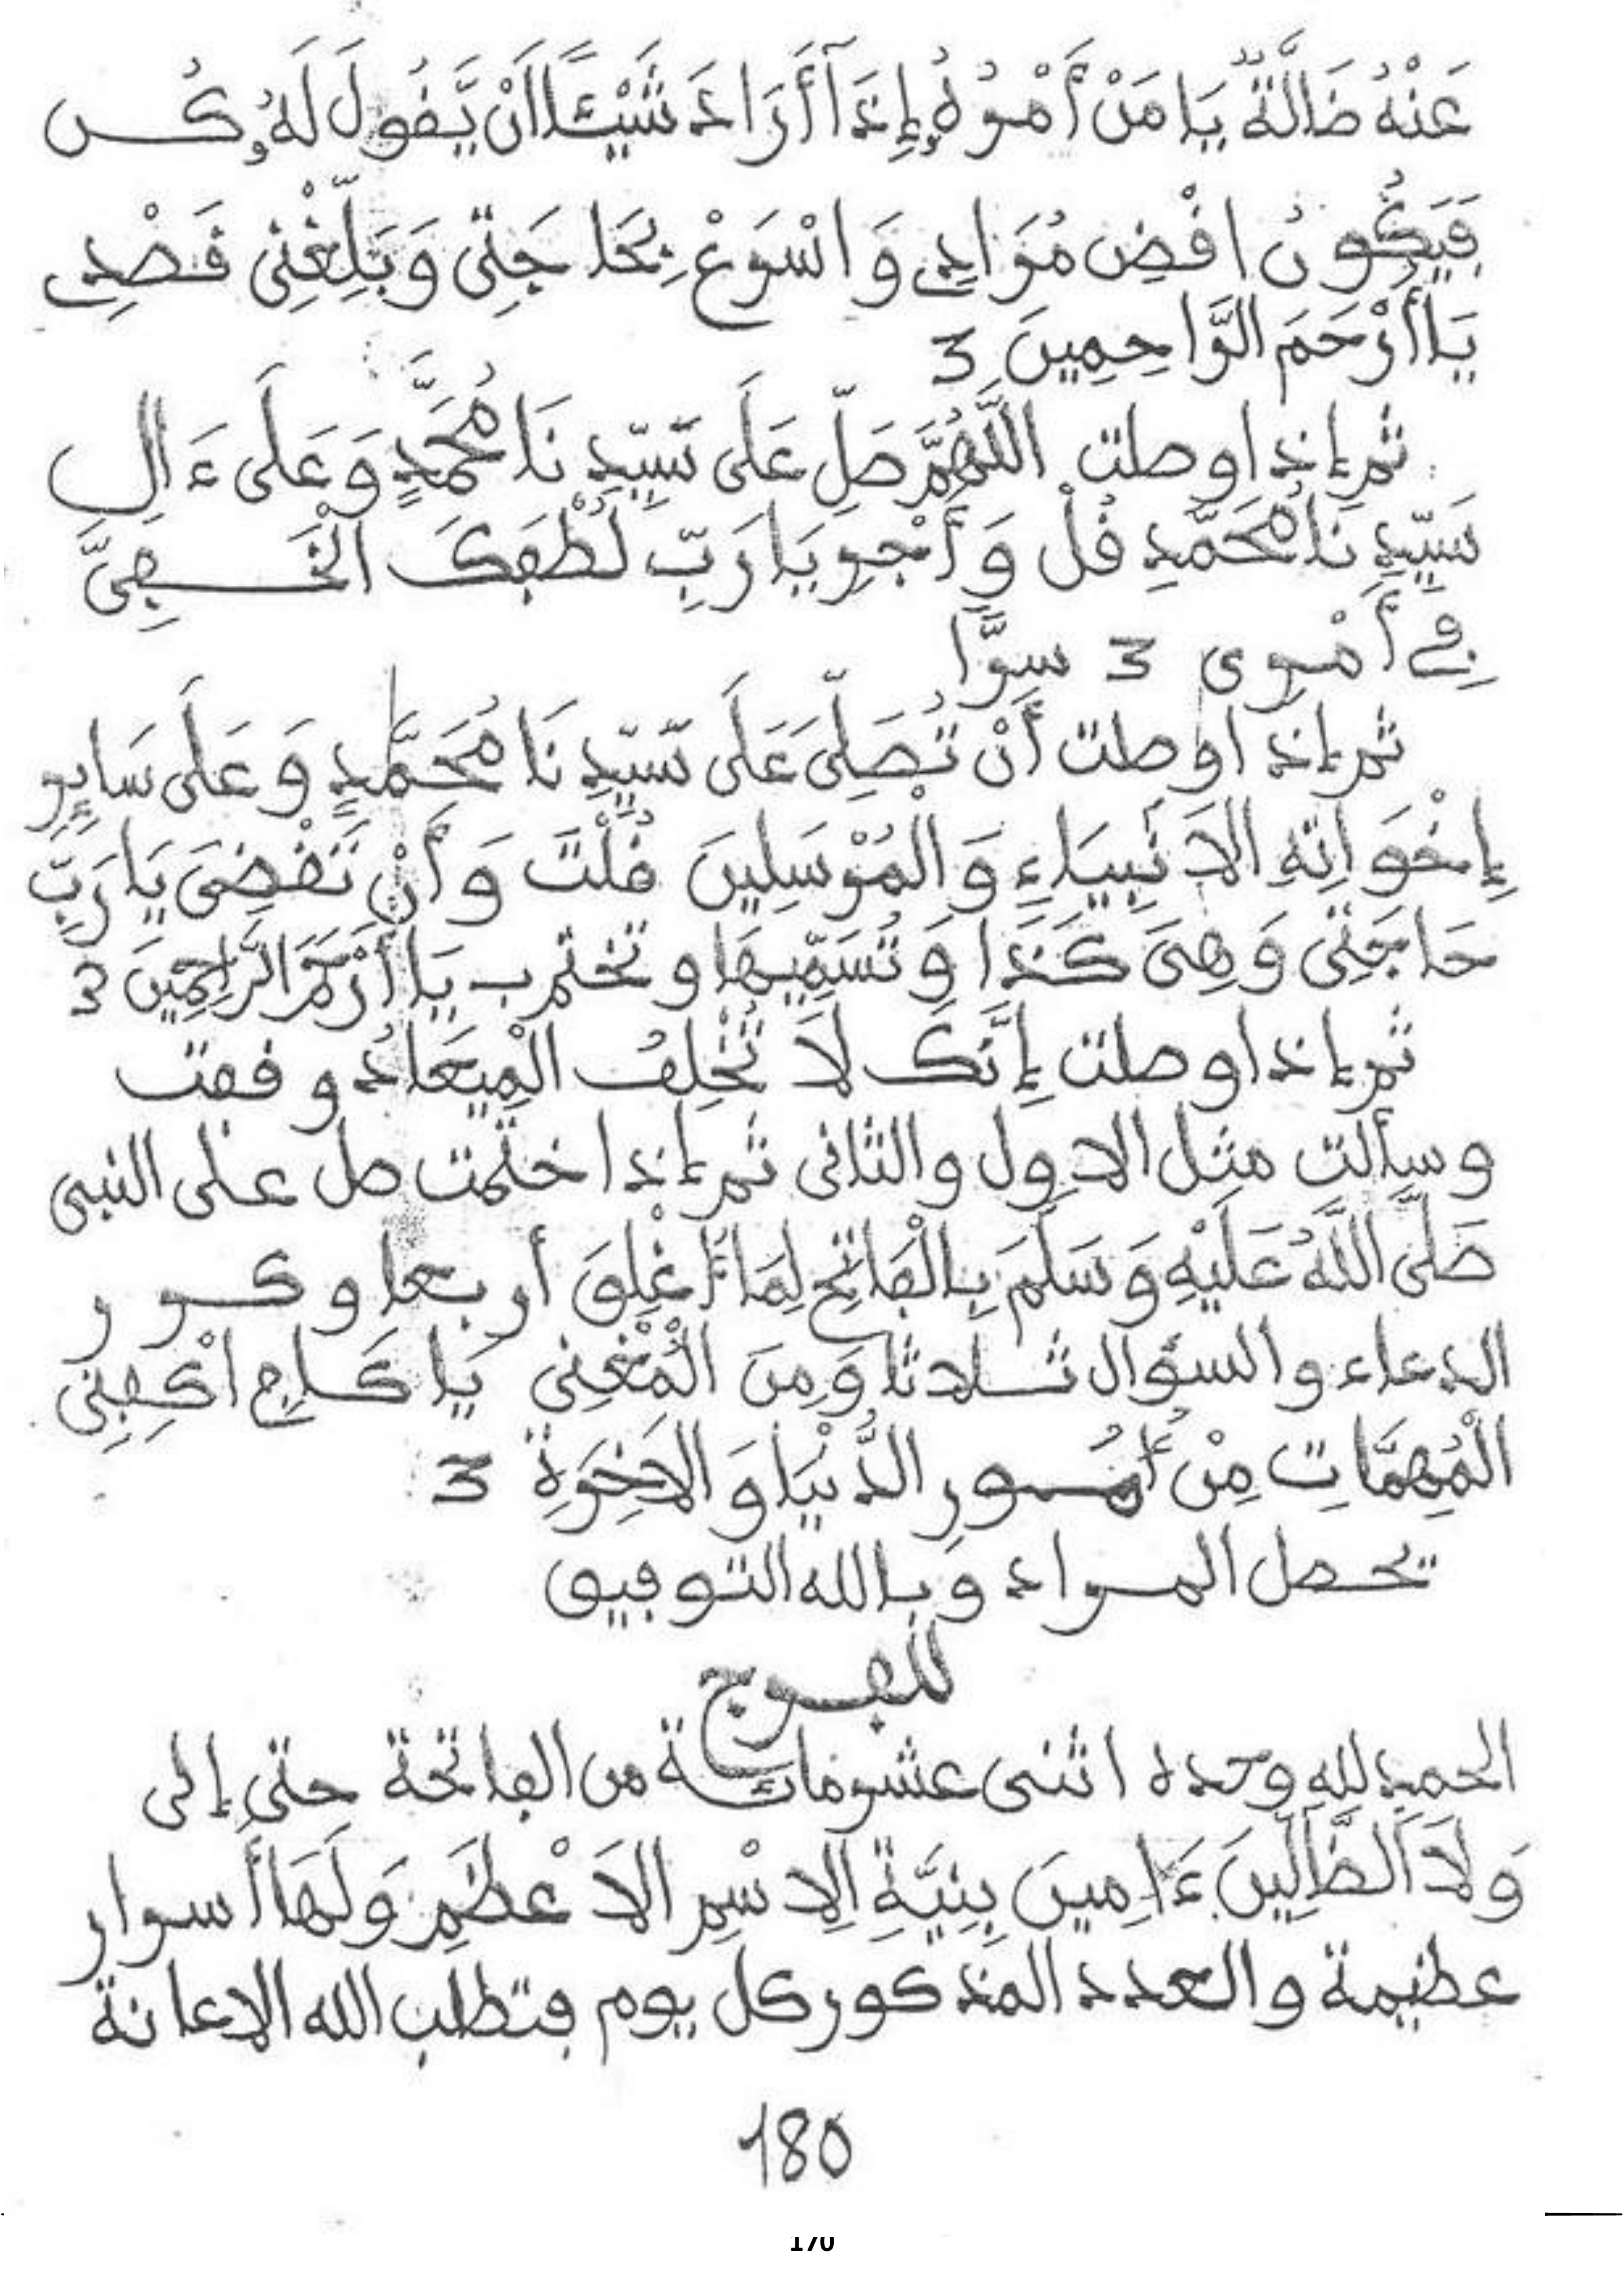 عَنْهُ ضَالَّةٌ يَا مَنْ أَمْرُهُ إِذَا أَرَادَ شَيْئًا أَنْ يَّقُولَ لَهُ كُن
فَيَكُونُ اقْضِ مُرَادِي وَاسْرَعْ بِحَاجَتِي وَبَلِّغْنِي قَصْدِي
يَا أَرْحَمَ الرَّاحِمِينَ 3
ثم إذا وصلت اللَّهُمَّ صَلِّ عَلَى سَيِّدِنَا مُحَمَّدٍ وَعَلَى ءَالِ
سَيِّدِنَا مُحَمَّدٍ قُلْ وَأَجْرِ يَا رَبِّ لُطْفَكَ الْخَفِيَّ
فِي أَمْرِي 3 سِرًّا
ثم إذا وصلت أَنْ تُصَلِّيَ عَلَى سَيِّدِنَا مُحَمَّدٍ وَعَلَى سَايِرِ
إِخْوَانِهِ الَانْبِيَاءِ وَالْمُرْسَلِينَ قُلْتَ وَأَنْ تَقْضِيَ يَا رَبِّ
حَاجَتِي وَهِيَ كَذَا وَتُسَمِّيهَا وتختم ب يَا أَرْحَمَ الرَّاحِمِينَ 3
ثم إذا وصلت إِنَّكَ لَا تُخْلِفُ الْمِيعَادَ وقفت
وسألت مثل الاول والثاني ثم إذا ختمت صل على النبي
صَلَّى اللَّهُ عَلَيْهِ وَسَلَّمَ بِالْفَاتِحِ لِمَا أُغْلِقَ أربعا وكرر
الدعاء والسؤال ثلاثا وَمِنَ الْمُغْنِي يَا كَافِي اكْفِنِي
الْمُهِمَّاتِ مِنْ أُمُورِ الدُّنْيَا وَالَاخِرَةِ 3
تحصل المراد وبالله التوفيق
للفرج
الحمد لله وحده اثنى عشر مائة من الفاتحة حتى إلى
وَلَا الضَّالِّينَ ءَامِينَ بِنِيَّةِ الِاسْمِ الَاعْظَمِ وَلَهَا أسرار
عظيمة والعدد المذكور كل يوم فتطلب الله الاعانة
180
170